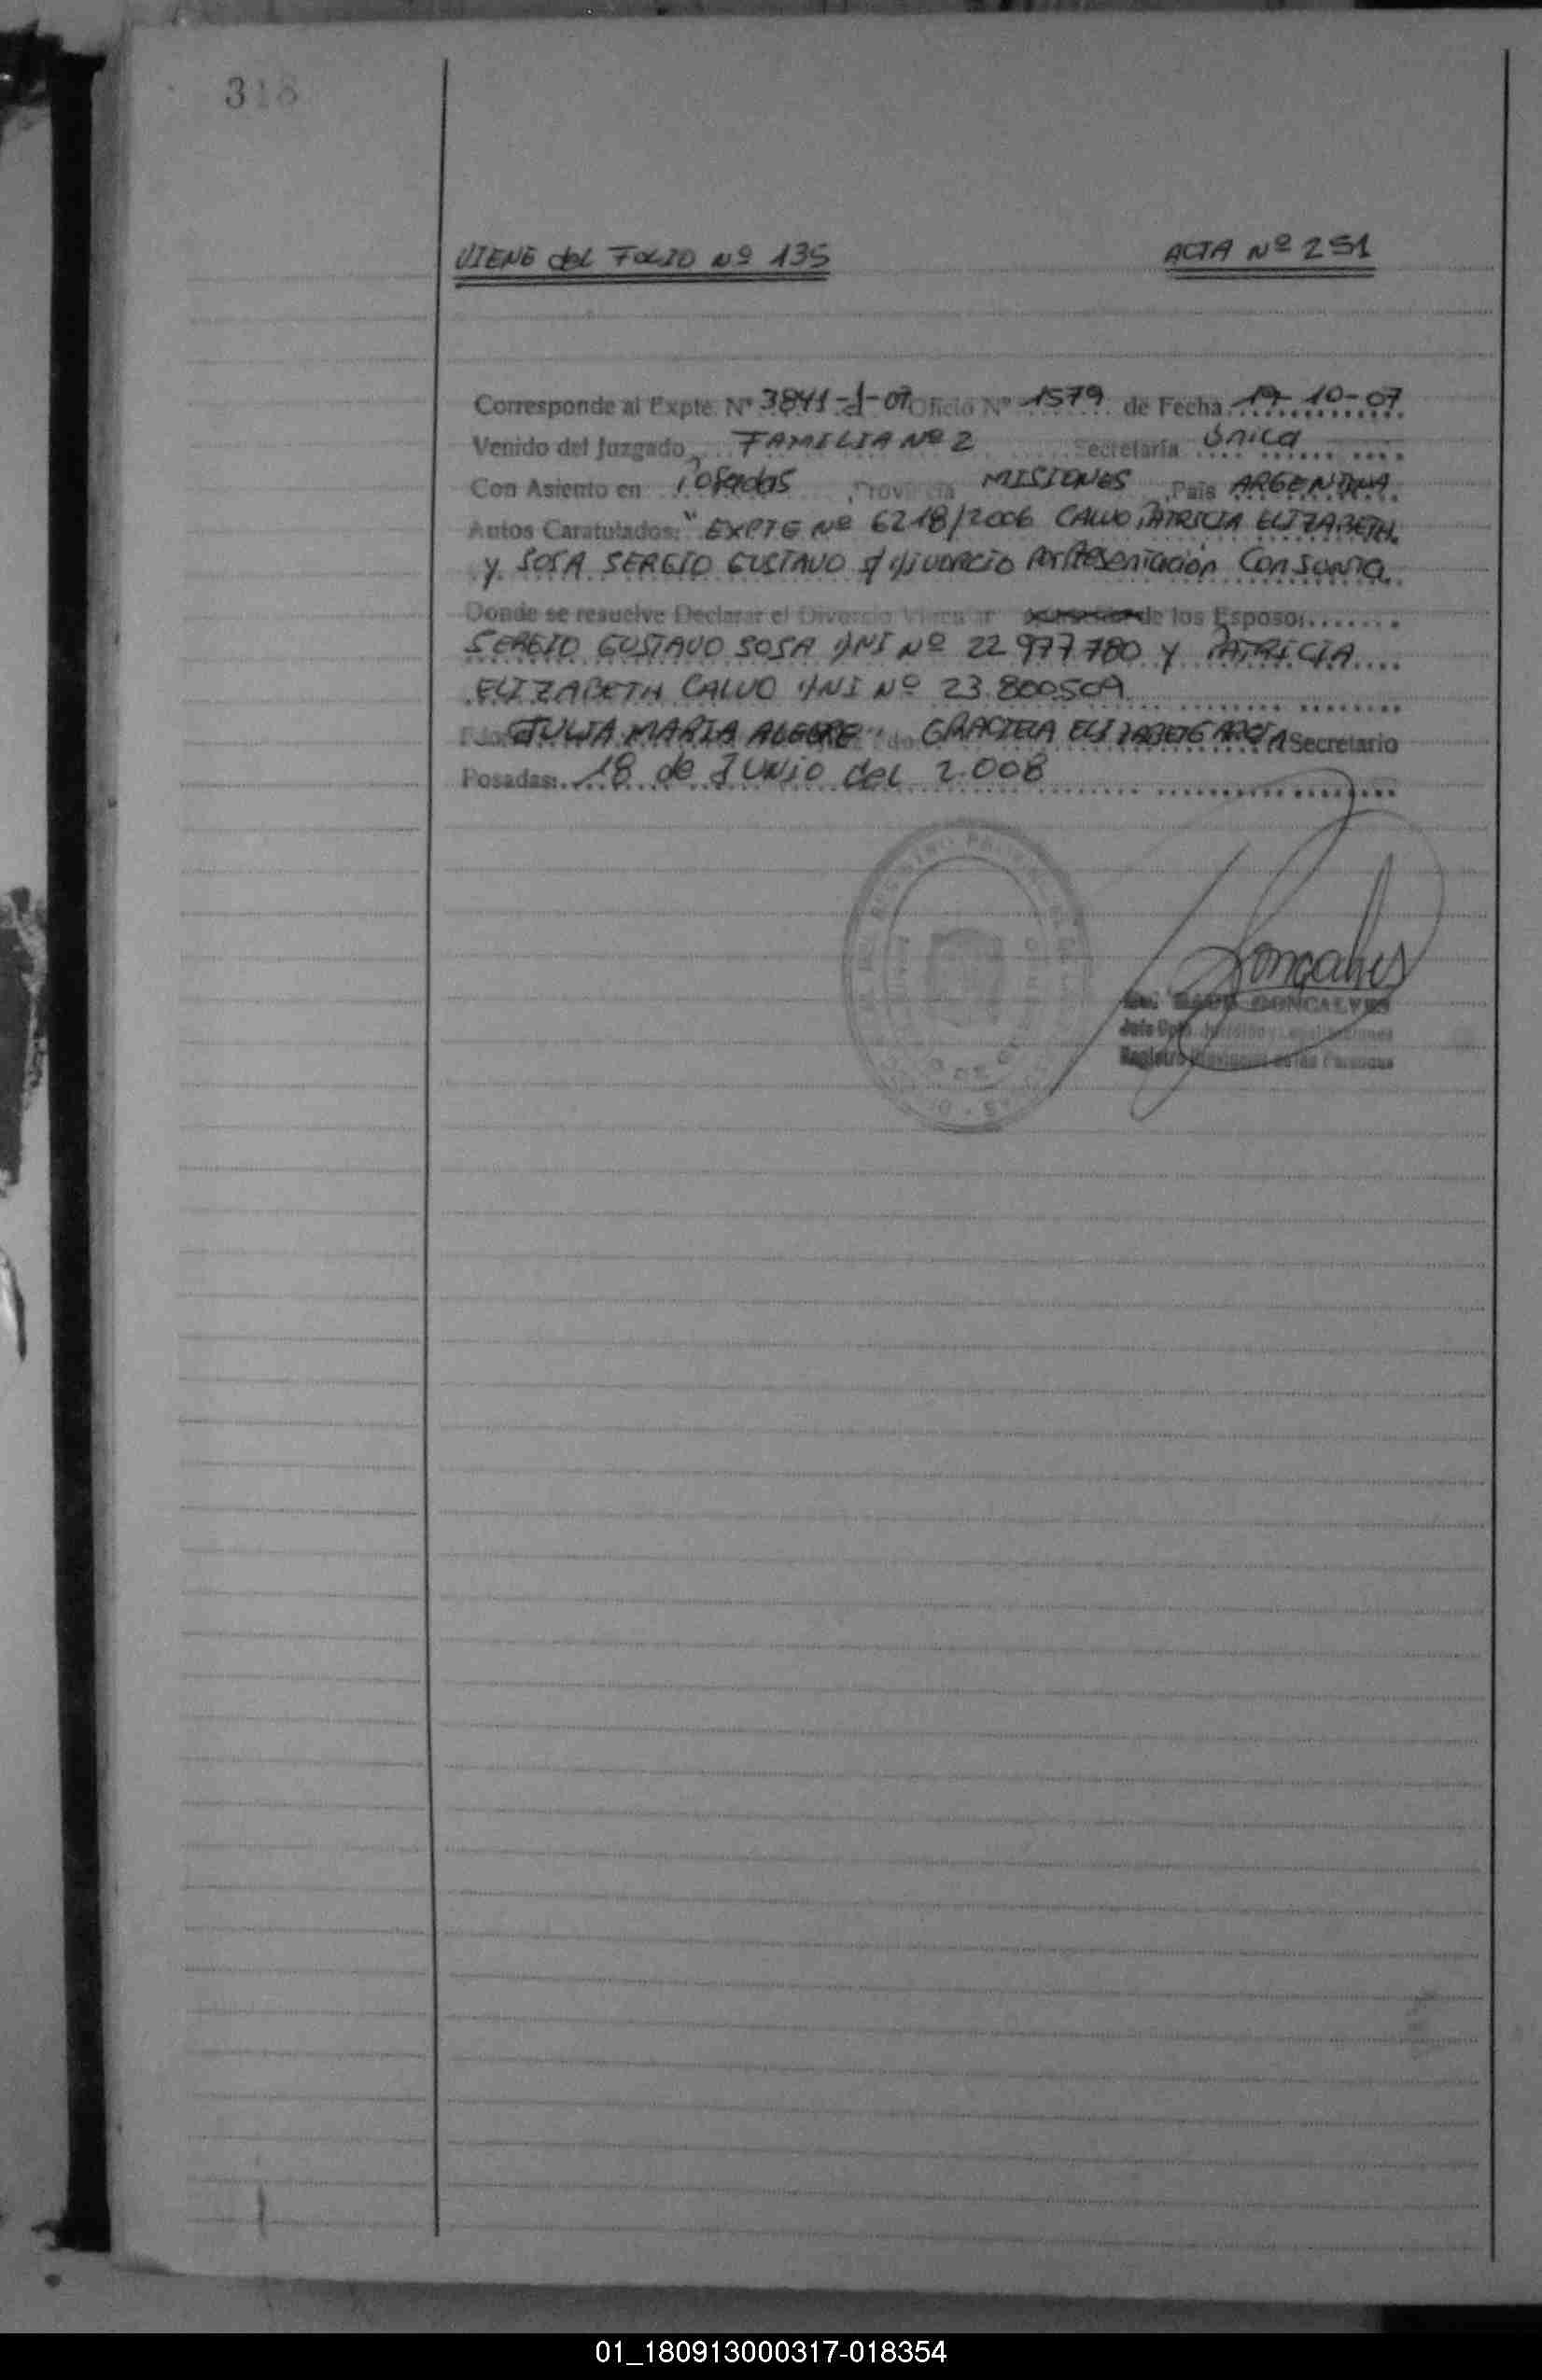 318
VIENE del FOLIO Nº 135
ACTA Nº 251
Corresponde al Expte. Nº 3841-d-07 Oficio Nº 1579 de Fecha 19-10-07
Venido del Juzgado FAMILIA Nº 2 Secretaría Única
Con Asiento en Posadas Provincia MISIONES País ARGENTINA
Autos Caratulados: "EXPTE Nº 6218/2006 CALVO PATRICIA ELIZABETH
y SOSA SERGIO GUSTAVO s/ divorcio Por Presentación Conjunta
Donde se resuelve Declarar el Divorcio Vincular de los Esposos
SERGIO GUSTAVO SOSA DNI Nº 22.977.780 y PATRICIA
ELIZABETH CALVO DNI Nº 23.800.509
Fdo. JULIA MARIA ALEGRE Fdo GRACIELA Secretario
Posadas: 18 de JUNIO del 2.008
GONCALVES
01_180913000317-018354